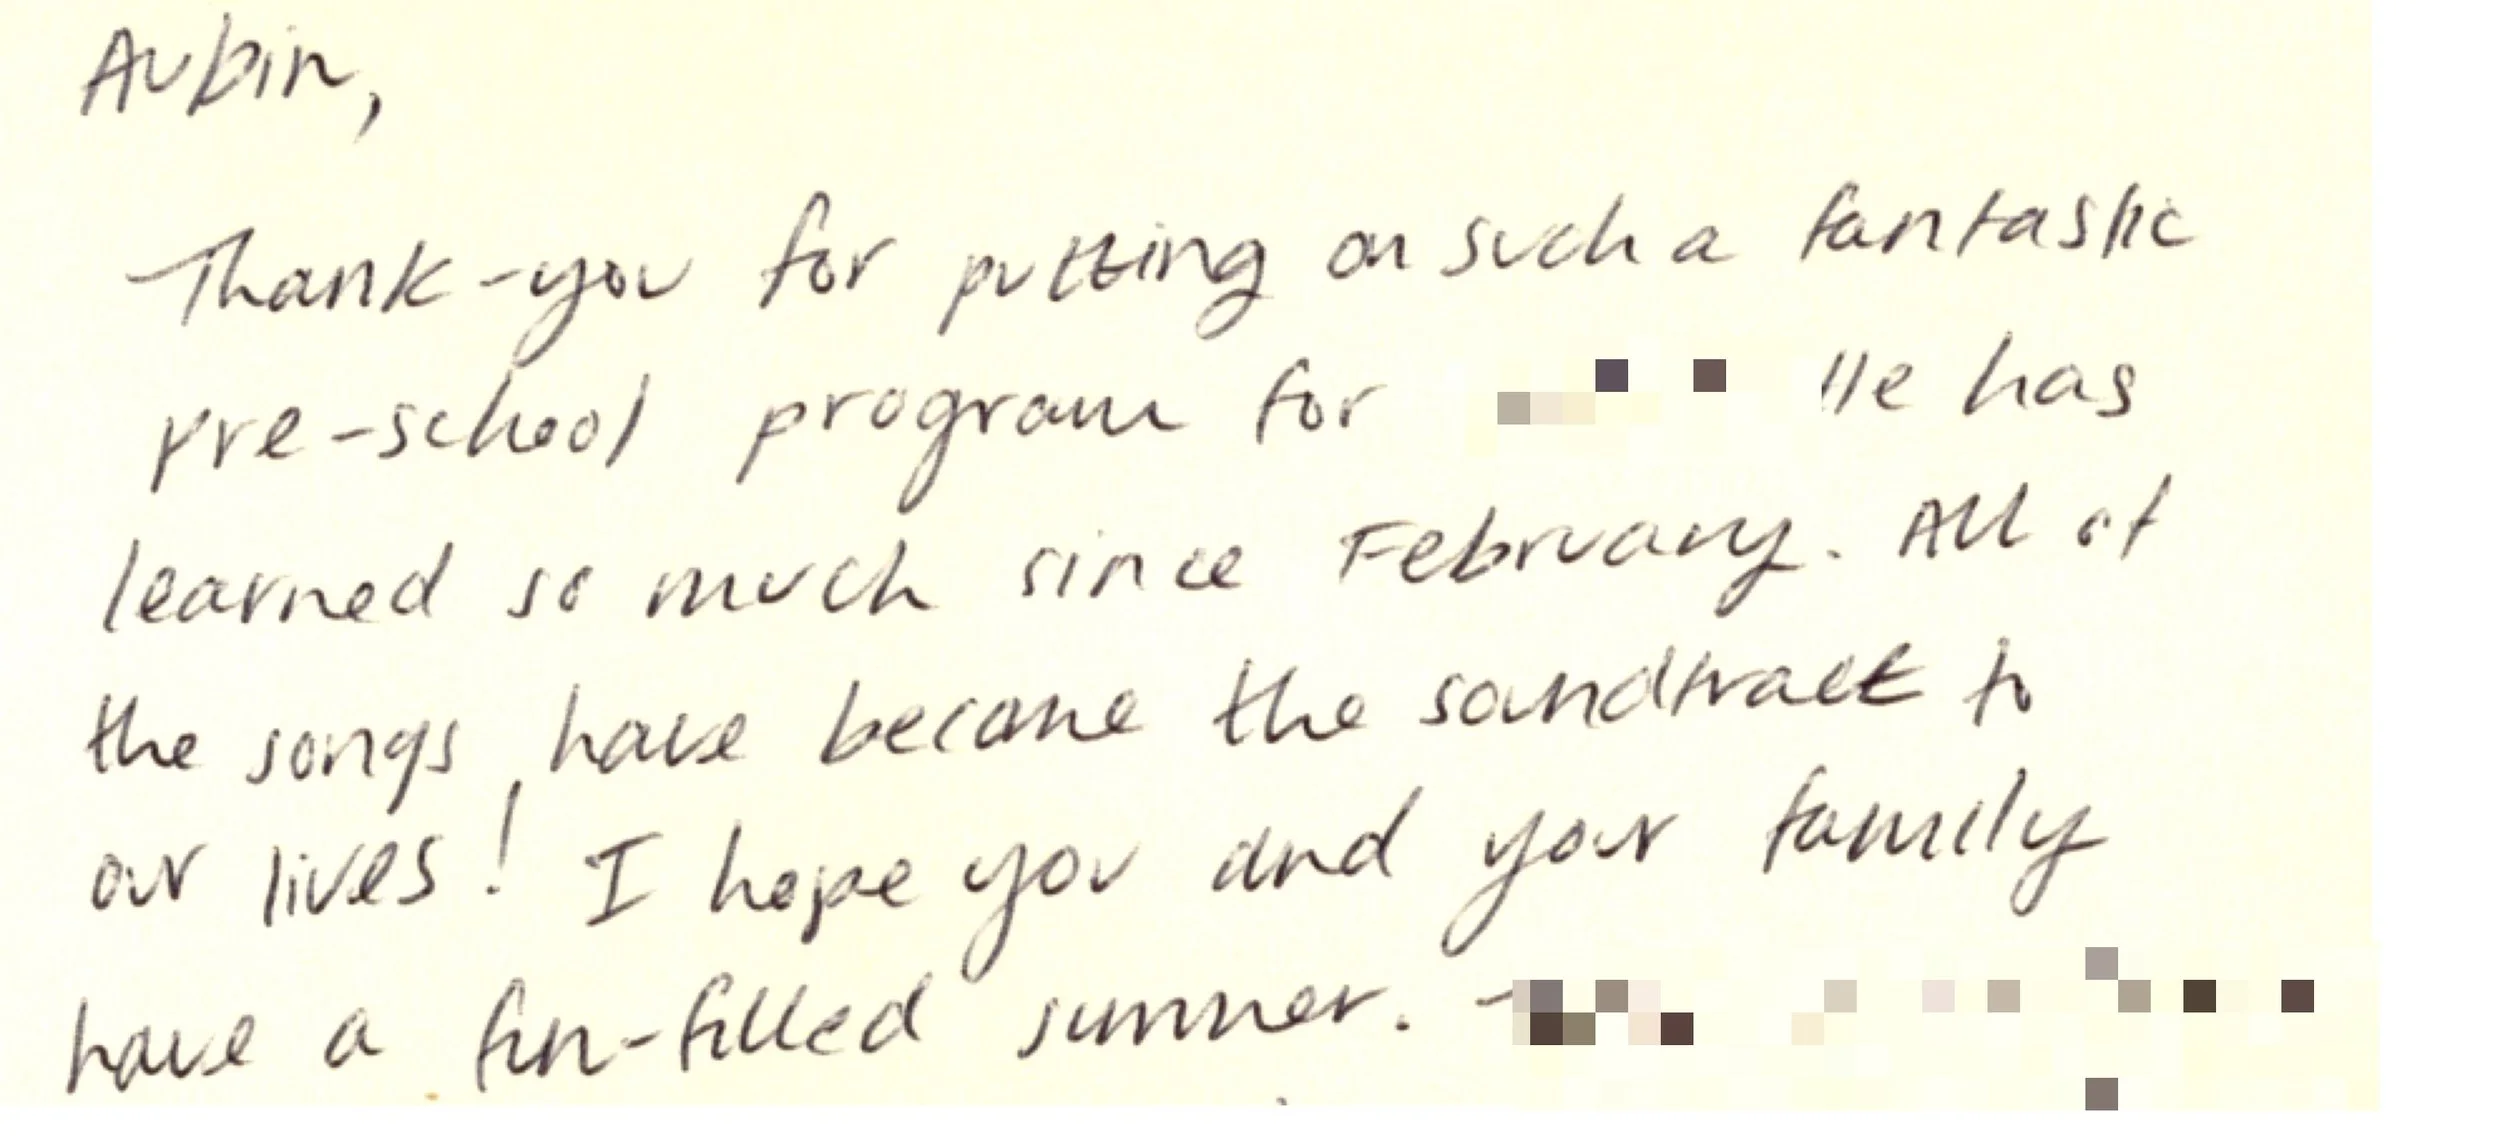 Aubin,
Thank-you for putting on such a fantastic
pre-school program for He has
learned so much since February. All of
the songs have become the soundtrack to
our lives! I hope you and your family
have a fun-filled summer. -